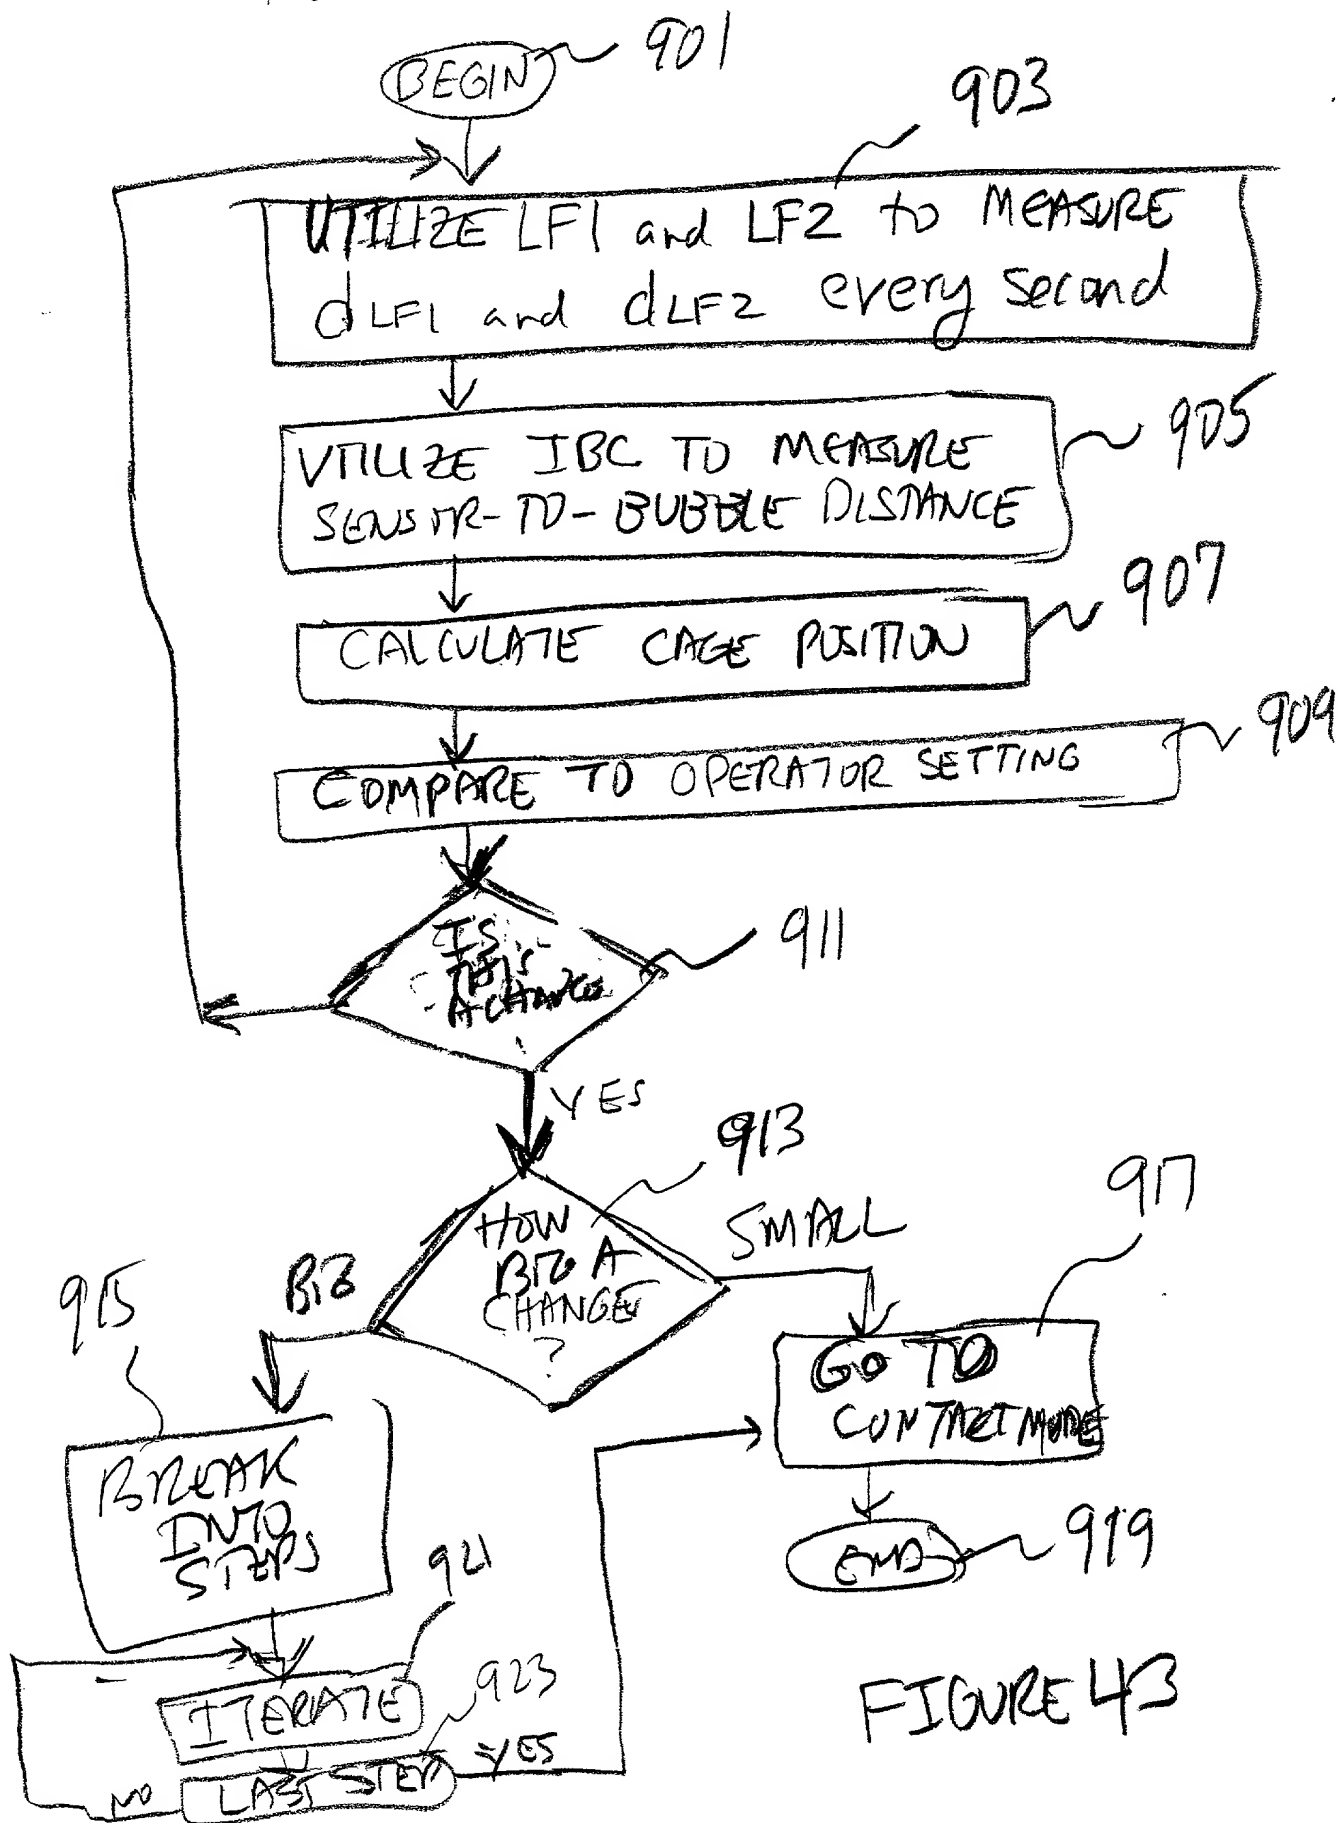 BEGIN
901
903
UTILIZE LF1 and LF2 to MEASURE
dLF1 and dLF2 every second
905
UTILIZE IBC TO MEASURE
SENSOR-TO-BUBBLE DISTANCE
907
CALCULATE CAGE POSITION
909
COMPARE TO OPERATOR SETTING
911
IS
THIS
A CHANGE
YES
913
HOW
BIG A
CHANGE
?
SMALL
917
BIG
915
GO TO
CONTACT MODE
BREAK
INTO
STEPS
END
919
921
ITERATE
923
LAST STEP
YES
NO
FIGURE 43